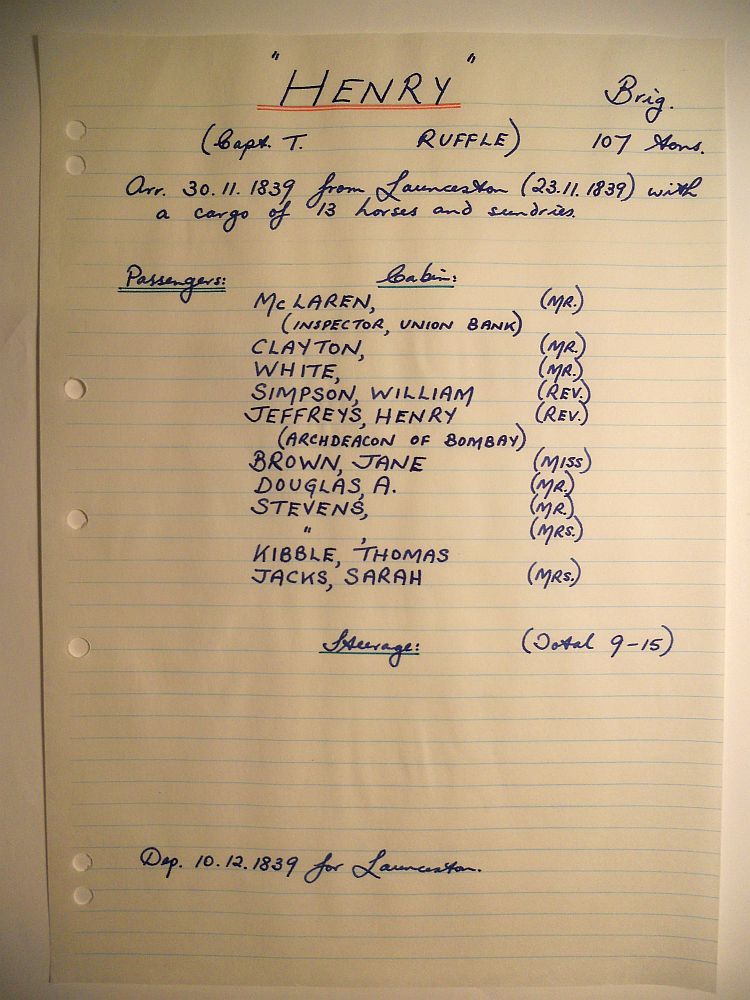 "HENRY" Brig.
(Capt. T. RUFFLE) 107 tons.
Arr. 30.11.1839 from Launceston (23.11.1839) with
a cargo of 13 horses and sundries.
Passengers: Cabin:
McLAREN, (MR.)
(INSPECTOR, UNION BANK)
CLAYTON, (MR.)
WHITE, (MR.)
SIMPSON, WILLIAM (REV.)
JEFFREYS, HENRY (REV.)
(ARCHDEACON OF BOMBAY)
BROWN, JANE (MISS)
DOUGLAS, A. (MR.)
STEVENS, (MR.)
" , (MRS.)
KIBBLE, THOMAS
JACKS, SARAH (MRS.)
Steerage: (Total 9-15)
Dep. 10.12.1839 for Launceston.